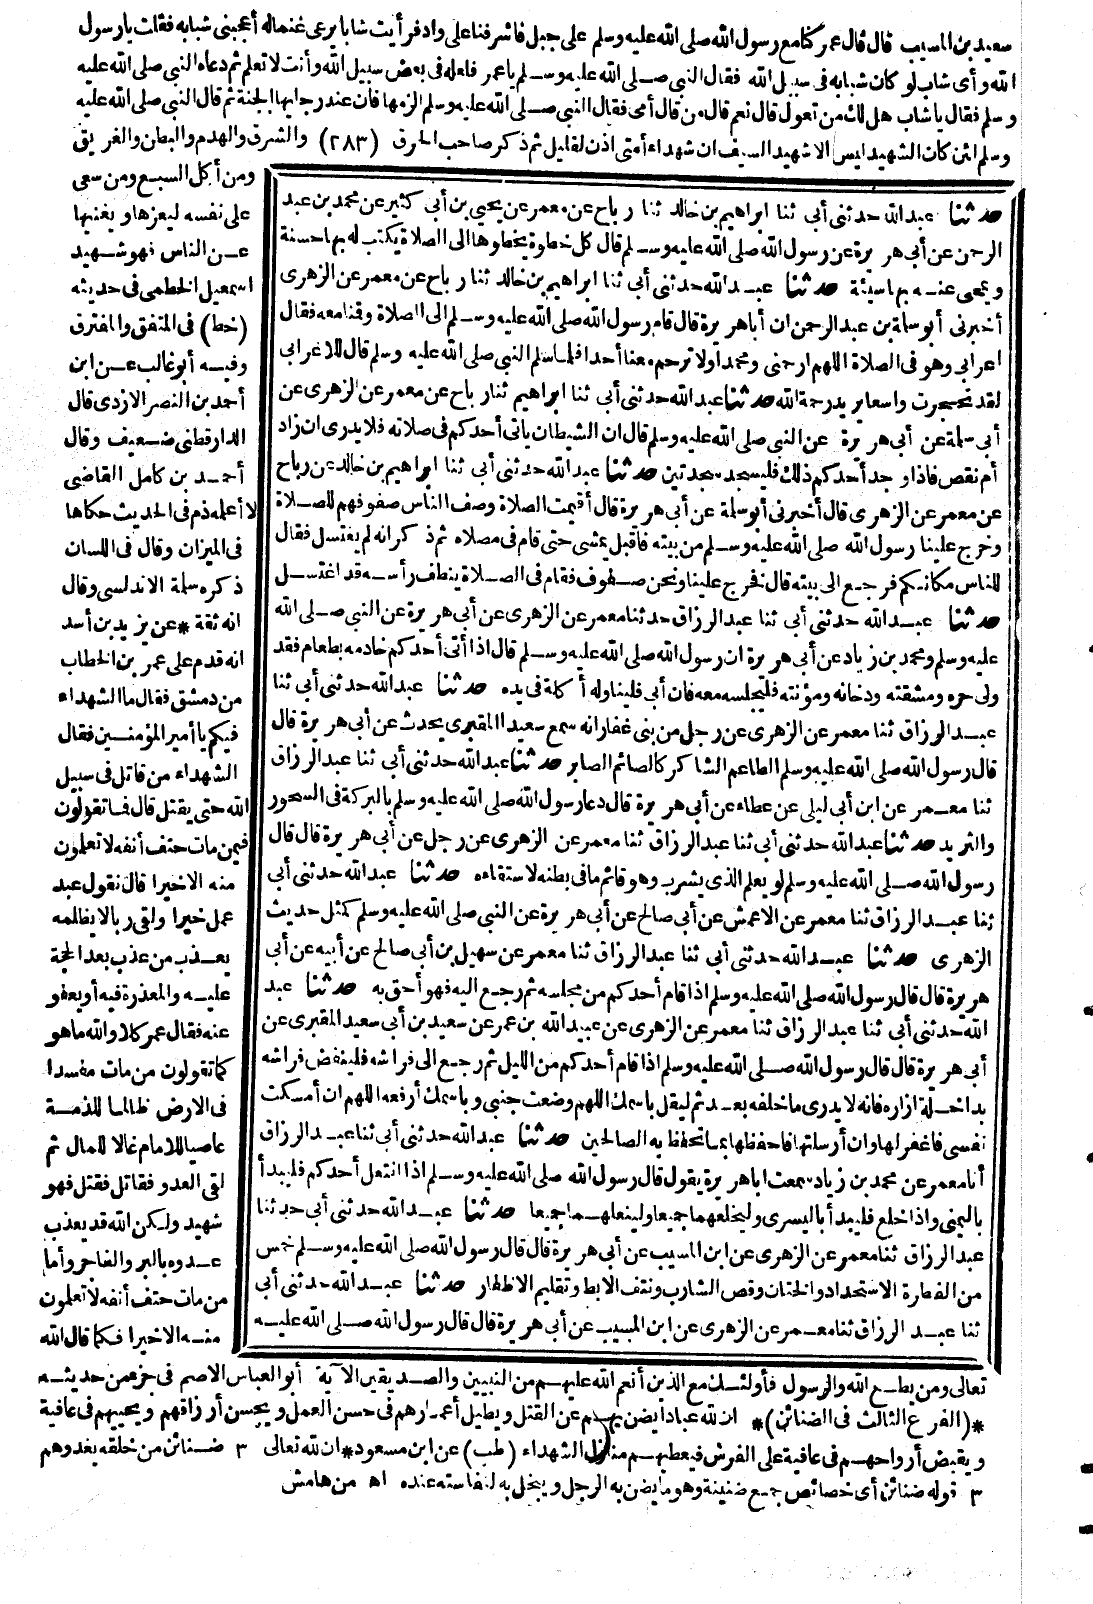 سعيد بن المسيب قال قال عمر كنا مع رسول الله صلى الله عليه وسلم على جبل فاشرفنا على واد فرأيت شابا يرعى غنماله أعجبني شبابه فقلت يارسول
الله وأى شاب لو كان شبابه فى سبيل الله فقال النبي صلى الله عليه وسلم ياعمر فلعله فى بعض سبيل الله وأنت لا تعلم ثم دعاه النبي صلى الله عليه
وسلم فقال ياشاب هل لك من تعول قال نعم قال من قال أمى فقال النبي صلى الله عليه وسلم الزمها فان عند رجليها الجنة ثم قال النبي صلى الله عليه
وسلم لئن كان الشهيد ليس الا شهيد السيف ان شهداء أمتى اذن لقليل ثم ذكر صاحب الحرق (٢٨٣) والشرق والهدم والبطن والغريق
ومن أكل السبع ومن سعى
على نفسه ليعزها ويغنيها
عن الناس فهو شهيد
اسمعيل الخطمى فى حديثه
(خط) فى المتفق والمفترق
وفيه أبو غالب عن ابن
أحمد بن النضر الازدى قال
الدارقطنى ضعيف وقال
أحمد بن كامل القاضى
لا أعلمه ذم فى الحديث حكاها
فى الميزان وقال فى اللسان
ذكره سلمة الاندلسى وقال
انه ثقة * عن يزيد بن أسد
انه قدم على عمر بن الخطاب
من دمشق فقال ما الشهداء
فيكم يا أمير المؤمنين فقال
الشهداء من قاتل فى سبيل
الله حتى يقتل قال فما تقولون
فيمن مات حتف أنفه لا تعلمون
منه الاخيرا قال نقول عبد
عمل خيرا ولقى ربا لا يظلمه
يعذب من عذب بعد الحجة
عليه والمعذرة فيه أو يعفو
عنه فقال عمر كلا والله ما هو
كما تقولون من مات مفسدا
فى الارض ظالما للذمة
عاصيا للامام غالا للمال ثم
لقى العدو فقاتل فقتل فهو
شهيد ولكن الله قد يعذب
عدوه بالبر والفاجر وأما
من مات حتف أنفه لا تعلمون
منه الاخيرا فكما قال الله
حدثنا عبد الله حدثنى أبى ثنا ابراهيم بن خالد ثنا رباح عن معمر عن يحيى بن أبى كثير عن محمد بن عبد
الرحمن عن أبى هريرة عن رسول الله صلى الله عليه وسلم قال كل خطوة يخطوها الى الصلاة يكتب له بها حسنة
ويمحى عنه بها سيئة حدثنا عبد الله حدثنى أبى ثنا ابراهيم بن خالد ثنا رباح عن معمر عن الزهرى
أخبرنى أبو سلمة بن عبد الرحمن ان أباهريرة قال قام رسول الله صلى الله عليه وسلم الى الصلاة وقنا معه فقال
اعرابى وهو فى الصلاة اللهم ارحمنى ومحمدا ولا ترحم معنا أحدا فلما سلم النبي صلى الله عليه وسلم قال للاعرابى
لقد تحجرت واسعا يريد رحمة الله حدثنا عبد الله حدثنى أبى ثنا ابراهيم ثنا رباح عن معمر عن الزهرى عن
أبى سلمة عن أبى هريرة عن النبي صلى الله عليه وسلم قال ان الشيطان يأتى أحدكم فى صلاته فلا يدرى ان زاد
أم نقص فاذا وجد أحدكم ذلك فليسجد سجدتين حدثنا عبد الله حدثنى أبى ثنا ابراهيم بن خالد عن رباح
عن معمر عن الزهرى قال أخبرنى أبو سلمة عن أبى هريرة قال أقيمت الصلاة وصف الناس صفوفهم للصلاة
وخرج علينا رسول الله صلى الله عليه وسلم من بيته فاقبل يمشى حتى قام فى مصلاه ثم ذكر انه لم يغتسل فقال
للناس مكانكم فرجع الى بيته قال نفرج علينا ونحن صفوف فقام فى الصلاة ينطف رأسه قد اغتسل
حدثنا عبد الله حدثنى أبى ثنا عبد الرزاق حدثنا معمر عن الزهرى عن أبى هريرة عن النبي صلى الله
عليه وسلم ومحمد بن زياد عن أبى هريرة ان رسول الله صلى الله عليه وسلم قال اذا أتى أحدكم خادمه بطعام فقد
ولى حره ومشقته ودخانه ومؤنته فليجلسه معه فان أبى فليناوله أكلة فى يده حدثنا عبد الله حدثنى أبى ثنا
عبد الرزاق ثنا معمر عن الزهرى عن رجل من بنى غفار انه سمع سعيدا المقبرى يحدث عن أبى هريرة قال
قال رسول الله صلى الله عليه وسلم الطاعم الشاكر كالصائم الصابر حدثنا عبد الله حدثنى أبى ثنا عبد الرزاق
ثنا معمر عن ابن أبى ليلى عن عطاء عن أبى هريرة قال دعا رسول الله صلى الله عليه وسلم بالبركة فى السحور
والثريد حدثنا عبد الله حدثنى أبى ثنا عبد الرزاق ثنا معمر عن الزهرى عن رجل عن أبى هريرة قال قال
رسول الله صلى الله عليه وسلم لو يعلم الذى يشرب وهو قائم ما فى بطنه لاستقاءه حدثنا عبد الله حدثنى أبى
ثنا عبد الرزاق ثنا معمر عن الاعمش عن أبى صالح عن أبى هريرة عن النبي صلى الله عليه وسلم كمثل حديث
الزهرى حدثنا عبد الله حدثنى أبى ثنا عبد الرزاق ثنا معمر عن سهيل بن أبى صالح عن أبيه عن أبى
هريرة قال قال رسول الله صلى الله عليه وسلم اذا قام أحدكم من مجلسه ثم رجع اليه فهو أحق به حدثنا عبد
الله حدثنى أبى ثنا عبد الرزاق ثنا معمر عن الزهرى عن عبيد الله بن عمر عن سعيد بن أبى سعيد المقبرى عن
أبى هريرة قال قال رسول الله صلى الله عليه وسلم اذا قام أحدكم من الليل ثم رجع الى فراشه فلينفض فراشه
بداخلة ازاره فانه لا يدرى ما خلفه بعد ثم ليقل باسمك اللهم وضعت جنبى وباسمك أرفعه اللهم ان أمسكت
نفسى فاغفر لها وان أرسلتها فاحفظها بما تحفظ به الصالحين حدثنا عبد الله حدثنى أبى ثنا عبد الرزاق
أنا معمر عن محمد بن زياد سمعت اباهريرة يقول قال رسول الله صلى الله عليه وسلم اذا انتعل أحدكم فليبدأ
باليمنى واذا خلع فليبدأ باليسرى وليخلعهما جميعا ولينعلهما جميعا حدثنا عبد الله حدثنى أبى حدثنا
عبد الرزاق ثنا معمر عن الزهرى عن ابن المسيب عن أبى هريرة قال قال رسول الله صلى الله عليه وسلم خمس
من الفطرة الاستحداد والختان وقص الشارب ونتف الابط وتقليم الاظفار حدثنا عبد الله حدثنى أبى
ثنا عبد الرزاق ثنا معمر عن الزهرى عن ابن المسيب عن أبى هريرة قال قال رسول الله صلى الله عليه
تعالى ومن يطع الله والرسول فأولئك مع الذين أنعم الله عليهم من النبيين والصديقين الآية أبو العباس الاصم فى جزء من حديثه
*(الفرع الثالث فى الضنائن)* ان لله عبادا يضن بهم عن القتل ويطيل أعمارهم فى حسن العمل ويحسن أرزاقهم ويحييهم فى عافية
ويقبض أرواحهم فى عافية على الفرش فيعطيهم منازل الشهداء (طب) عن ابن مسعود * ان لله تعالى ٣ ضنائن من خلقه يغدوهم
٣ قوله ضنائن أى خصائص جمع ضنينة وهو ما يضن به الرجل ويبخل به لنفاسته عنده اه من هامش